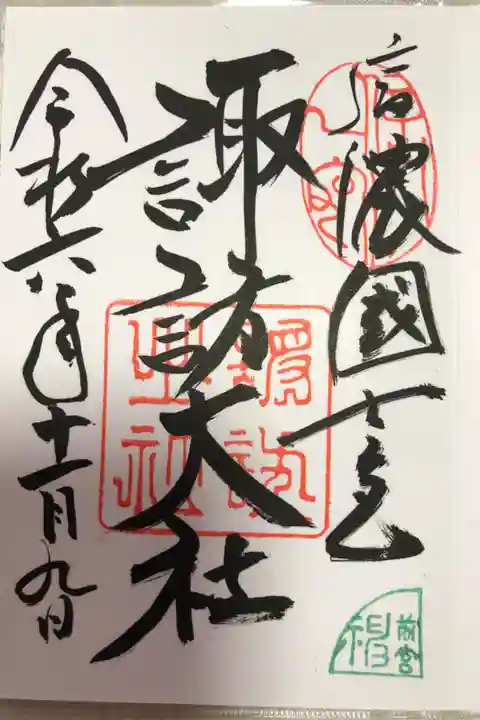 信濃國一宮
諏訪大社
令和六年十一月九日
前宮